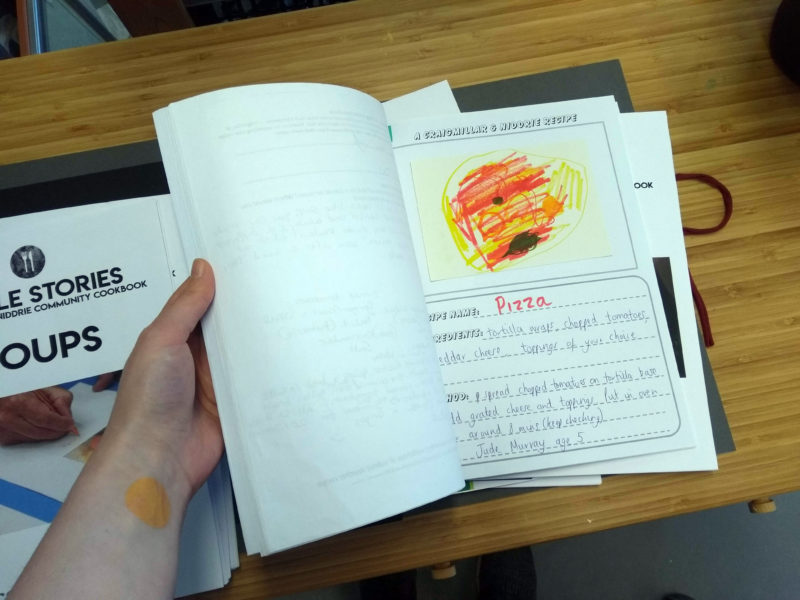 LE STORIES
NIDDRIE COMMUNITY COOKBOOK
OUPS
A CRAIGMILLAR & NIDDRIE RECIPE
OOK
IPE NAME: Pizza
REDIENTS: tortilla wraps, chopped tomatoes,
eddar cheese toppings of your choice
HOD: spread chopped tomatoes on tortilla base
ld grated cheese and toppings Put in oven
around 8 mins (keep checking)
Jude Murray age 5